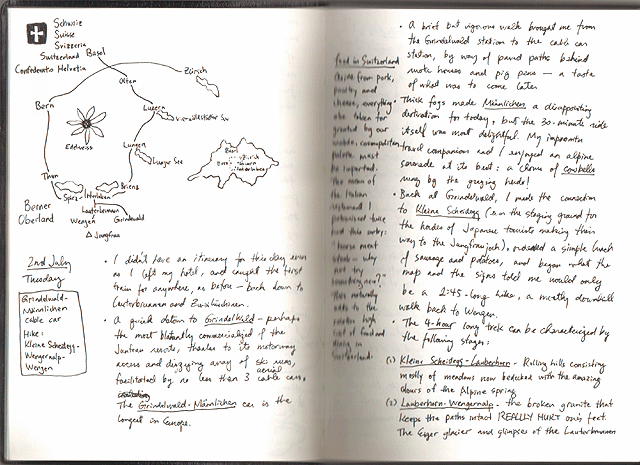 Schweiz
Suisse
Svizzeria
Switzerland
Confederatio Helvetia
Basel
Olten
Zürich
Bern
Luzern
Vierwaldstätter See
Edelweiss
Lungern
Lungern See
Thun
Spiez
Interlaken
Brienz
Lauterbrunnen
Wengen
Grindelwald
Jungfrau
Berner
Oberland
2nd July
Thursday
Grindelwald-
Männlichen
cable car
Hike:
Kleine Scheidegg -
Wengernalp-
Wengen
• I didn't have an itinerary for this day even
as I left my hotel, and caught the first
train for anywhere, as before - back down to
Lauterbrunnen and Zweilütschinen.
• A quick detour to Grindelwald - perhaps
the most blatantly commercialized of the
Jungfrau resorts, thanks to its motorway
access and dizzying array of ski runs,
facilitated by no less than 3 aerial cable cars,
The Grindelwald-Männlichen car is the
longest in Europe.
food in Switzerland
from pork,
poultry and
cheese, everything
else taken for
granted by our
cosmopolitan
must
be imported.
• A brief but vigorous walk brought me from
the Grindelwald station to the cable car
station, by way of paved paths behind
houses and pig pens - a taste
of what was to come later.
• Thick fogs made Männlichen a disappointing
destination for today, but the 30-minute ride
itself was most delightful. My impromptu
travel companion and I enjoyed an alpine
serenade at its best: a chorus of cowbells
rung by the grazing herds!
• Back at Grindelwald, I made the connection
to Kleine Scheidegg (the staging ground for
the hordes of Japanese tourists making their
way to the Jungfraujoch), ordered a simple lunch
of sausage and potatoes, and began what the
map and the signs told me would only
be a 2:45-long hike, a mostly downhill
walk back to Wengen.
• The 4-hour long trek can be characterized by
the following stages:
(1) Kleine Scheidegg - Lauberhorn - Rolling hills consisting
mostly of meadows now bedecked with the amazing
colours of the Alpine spring
(2) Lauberhorn-Wengernalp - the broken granite that
keeps the paths intact REALLY HURT one's feet.
The Eiger glacier and glimpses of the Lauterbrunnen